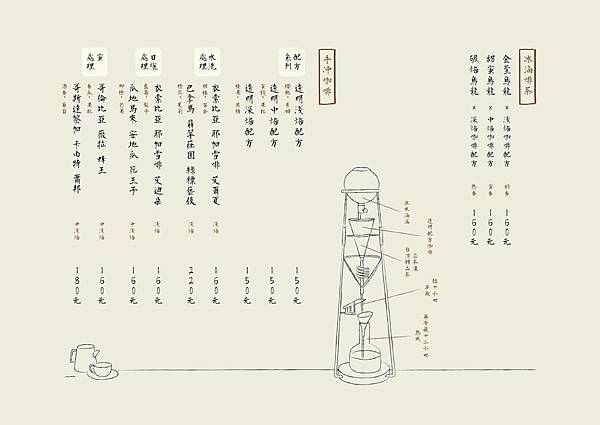 冰滴啡茶
金萱烏龍 x 淺焙咖啡配方 奶香 160元
甜蜜烏龍 x 中焙咖啡配方 蜜香 160元
碳焙烏龍 x 深焙咖啡配方 熟香 160元
手冲咖啡
配方系列
透明淺焙配方 150元
透明中焙配方 150元
透明深焙配方 150元
水洗處理
衣索比亞 耶加雪啡 艾瑞夏 淺焙 160元
巴拿馬 翡翠莊園 綠標藝伎 淺焙 220元
日曬處理
衣索比亞 耶加雪啡 艾迪朵 淺焙 160元
瓜地馬來 安地瓜 花王子 中淺焙 160元
蜜處理
哥倫比亞 薇拉 蜂王 中淺焙 160元
哥斯達黎加 卡內特 蕭邦 中淺焙 180元
冰水滴落
透明配方咖啡
芯茶濃
台灣精品茶
經十小時
萃取
再冷藏十二小時
熟成